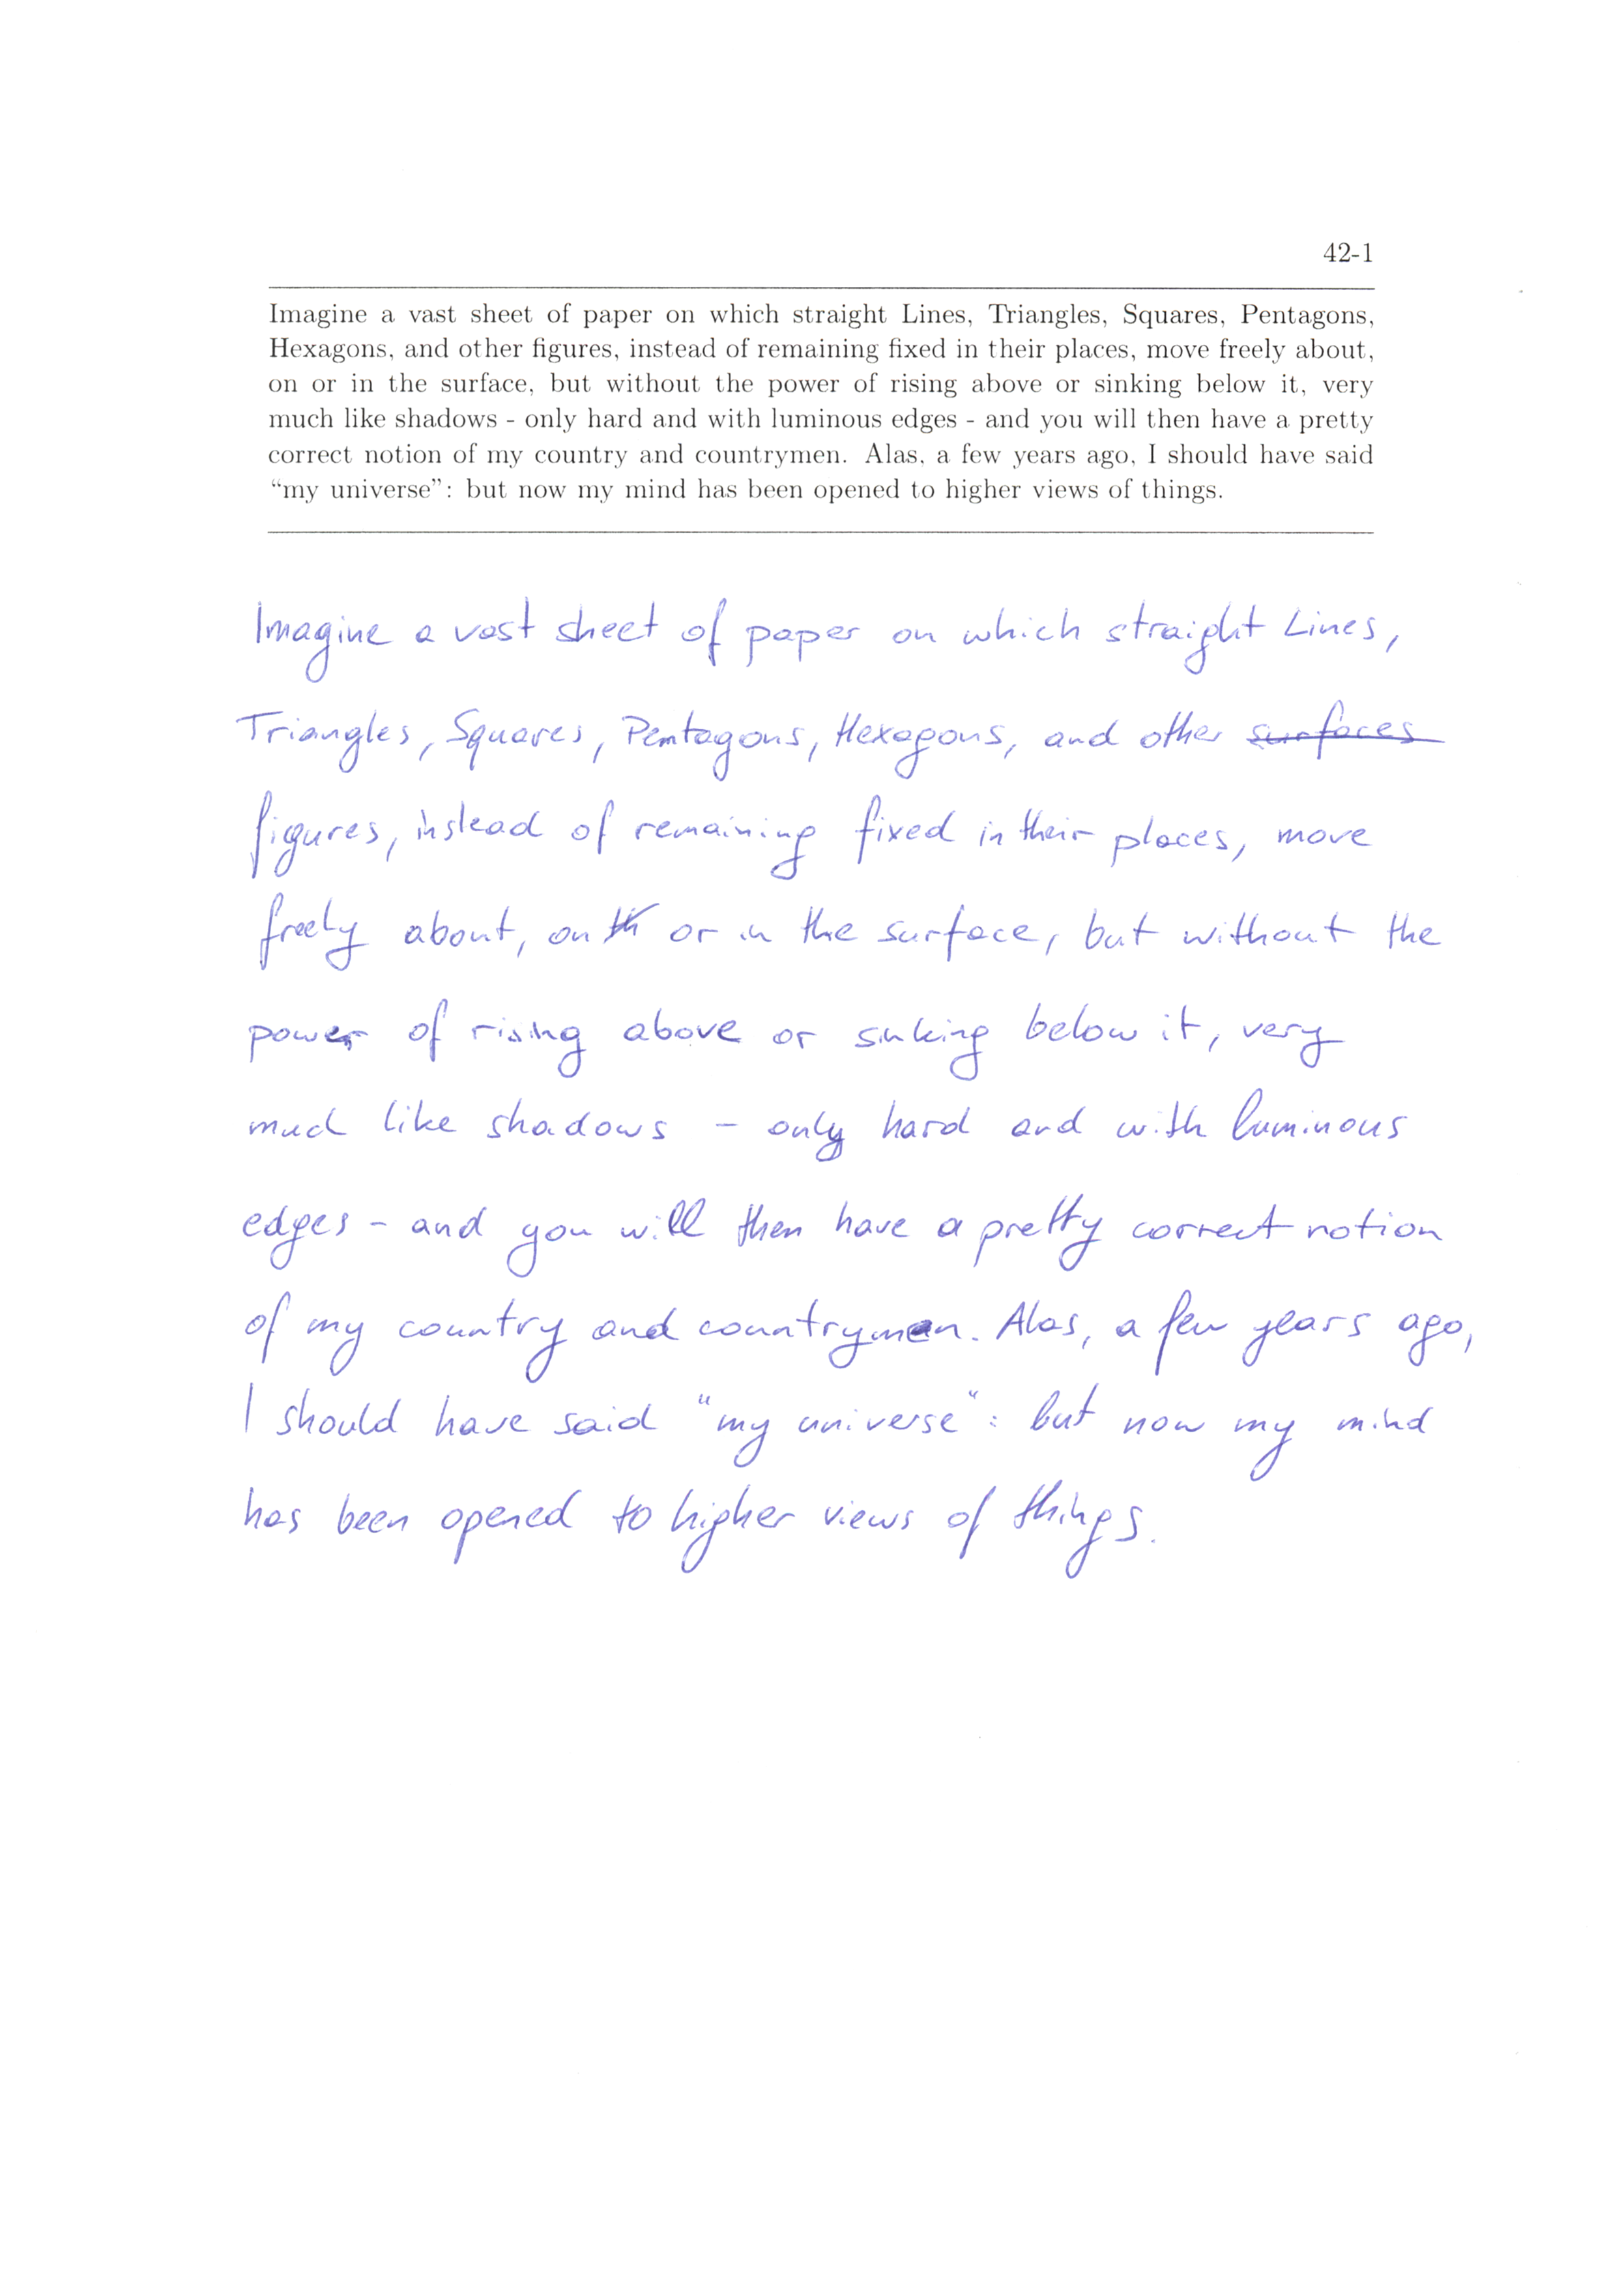 42-1
Imagine a vast sheet of paper on which straight Lines, Triangles, Squares, Pentagons,
Hexagons, and other figures, instead of remaining fixed in their places, move freely about,
on or in the surface, but without the power of rising above or sinking below it, very
much like shadows - only hard and with luminous edges - and you will then have a pretty
correct notion of my country and countrymen. Alas, a few years ago, I should have said
“my universe”: but now my mind has been opened to higher views of things.
Imagine a vast sheet of paper on which straight Lines,
Triangles, Squares, Pentagons, Hexagons, and other surfaces
figures, instead of remaining fixed in their places, move
freely about, on th or in the surface, but without the
power of rising above or sinking below it, very
much like shadows - only hard and with luminous
edges - and you will then have a pretty correct notion
of my country and countrymen. Alas, a few years ago,
I should have said "my universe": but now my mind
has been opened to higher views of things.